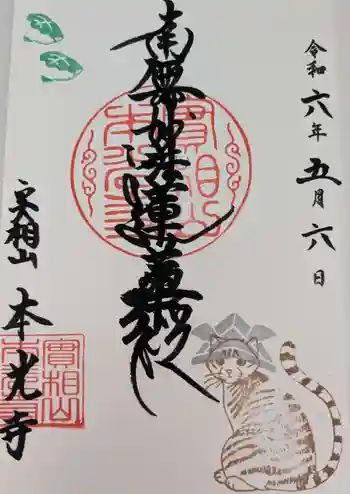 令和六年五月六日
南無妙法蓮華経
實相山
本光寺
実相山
本光寺
實相山
本光寺